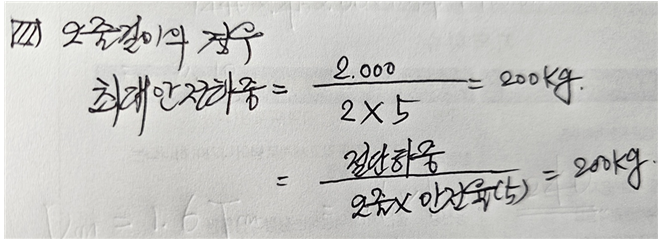 Ⅲ) 2줄걸이의 경우
최대안전하중 = 2.000 / 2 × 5 = 200kg.
= 절단하중 / 2줄 × 안전율(5) = 200kg.